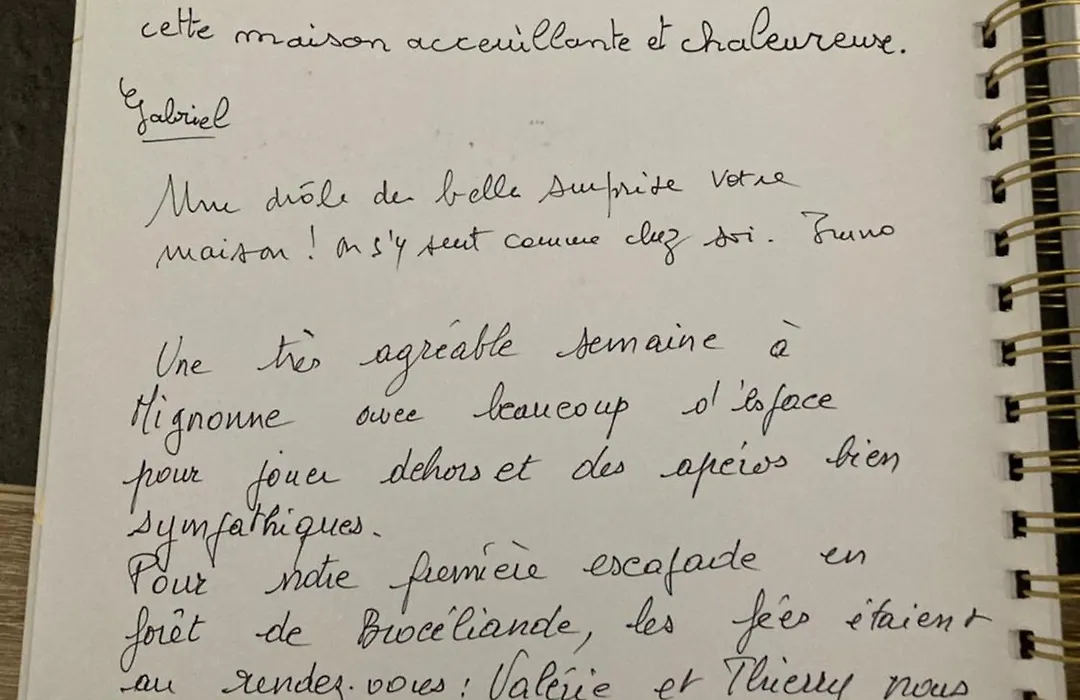 cette maison acceuillante et chaleureuse.
Gabriel
Une drôle de belle surprise votre
maison ! on s'y sent comme chez soi. Bruno
Une très agréable semaine à
Mignonne avec beaucoup d'espace
pour jouer dehors et des apéros bien
sympathiques.
Pour notre première escapade en
forêt de Brocéliande, les fées étaient
au rendez-vous : Valérie et Thierry nous